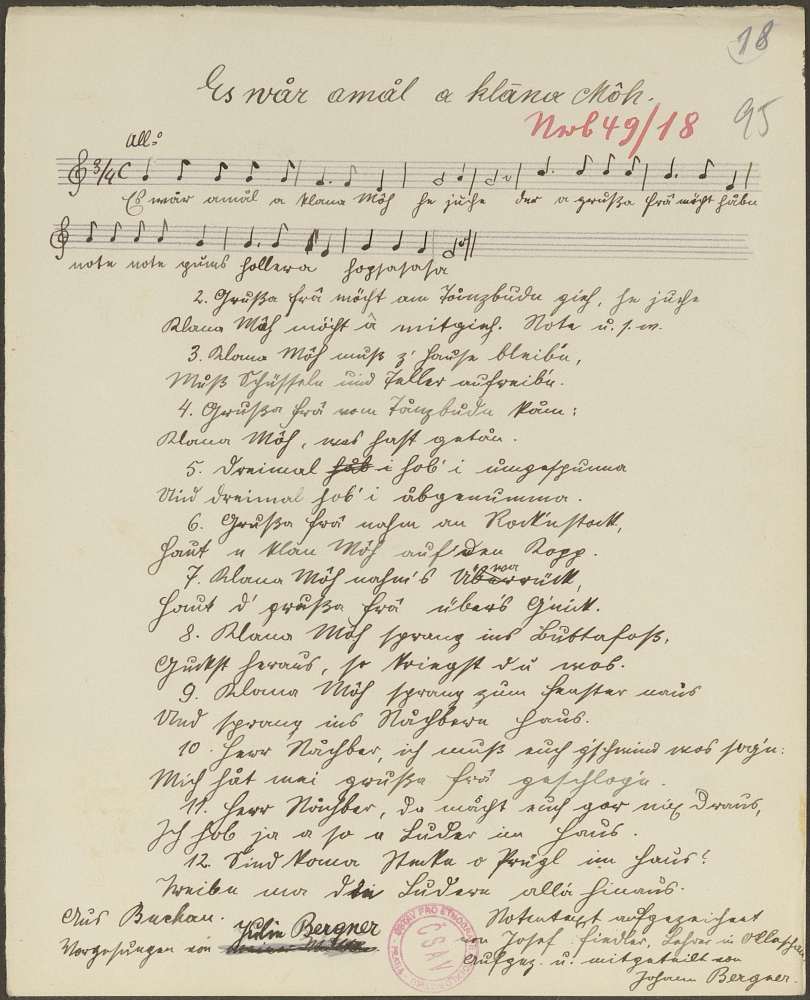 18
Es wår amål a klāna Môh.
Nrb 49/18 95
All:º
3/4 C
Es wår amål a klana Môh he juche der a grußa Frâ möcht håbn
note note gums hollera hopsasasa
2. Grußa Frâ möcht am Tånzbudn gieh, he juche
Klana Môh möcht â mitgieh. Note u. s. w.
3. Klana Môh muß z' Hause bleib'n,
Muß Schüsseln und Teller aufreib'n.
4. Grußa Frâ vom Tånzbudn kåm:
Klana Môh, was hast getån.
5. Dreimal håb i hob' i umgespunna
Und dreimal hob' i åbgenumma.
6. Grußa Frâ nahm an Rock'nstock,
Haut n klan Môh auf den Kopp.
7. Klana Môh nahm's
Haut d' grußa Frâ über's G'nick.
8. Klana Môh sprang ins Buttafoß,
Guckst heraus, so kriegst du wos.
9. Klana Môh sprang zum Fenster naus
Und sprang ins Nåchbern Haus.
10. Herr Nåchber, ich muß euch g'schwind wos sog'n:
Mich håt mei grußa Frâ geschlog'n.
11. Herr Nåchber, da måcht euch gor nix draus,
Ich hob ja a so a Luder im Haus.
12. Sind koma Stecka o Prügl im Haus?
Treibn ma die Ludern alla hinaus.
Aus Buckau.
Vorgesungen von Julie Bergner
Notentext aufgezeichnet
von Josef Fiedler, Lehrer in
Aufgez. u. mitgeteilt von
Johann Bergner.
ČSAV